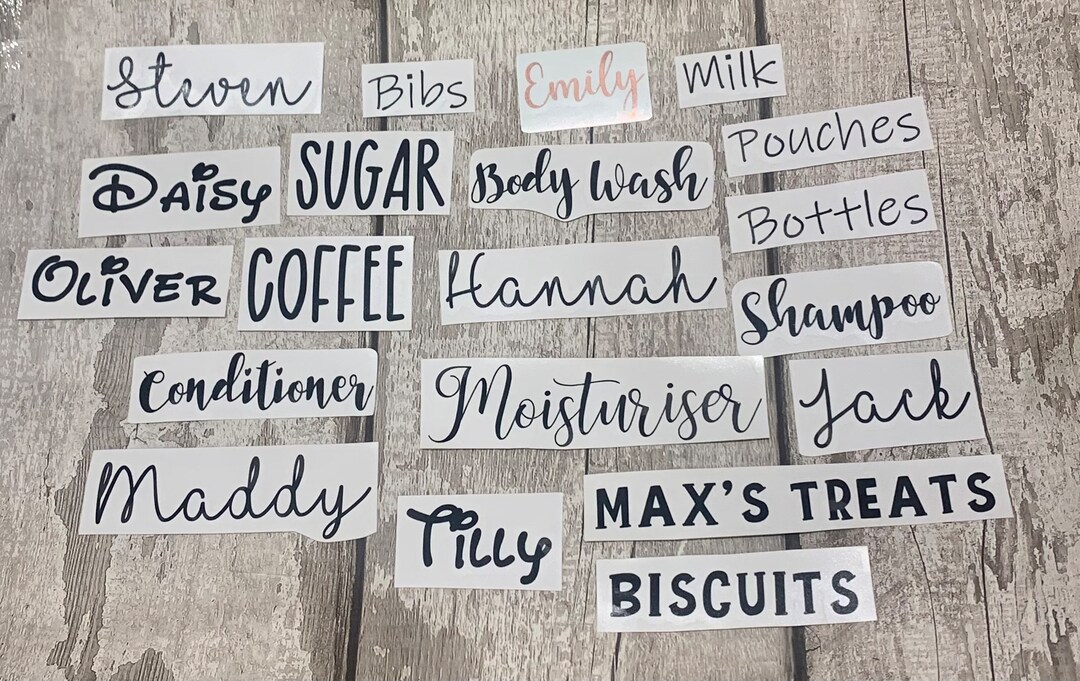 Steven
Bibs
Emily
Milk
Daisy
SUGAR
Body Wash
Pouches
Bottles
OLIVER
COFFEE
Hannah
Shampoo
Conditioner
Moisturiser
Jack
Maddy
Tilly
MAX'S TREATS
BISCUITS